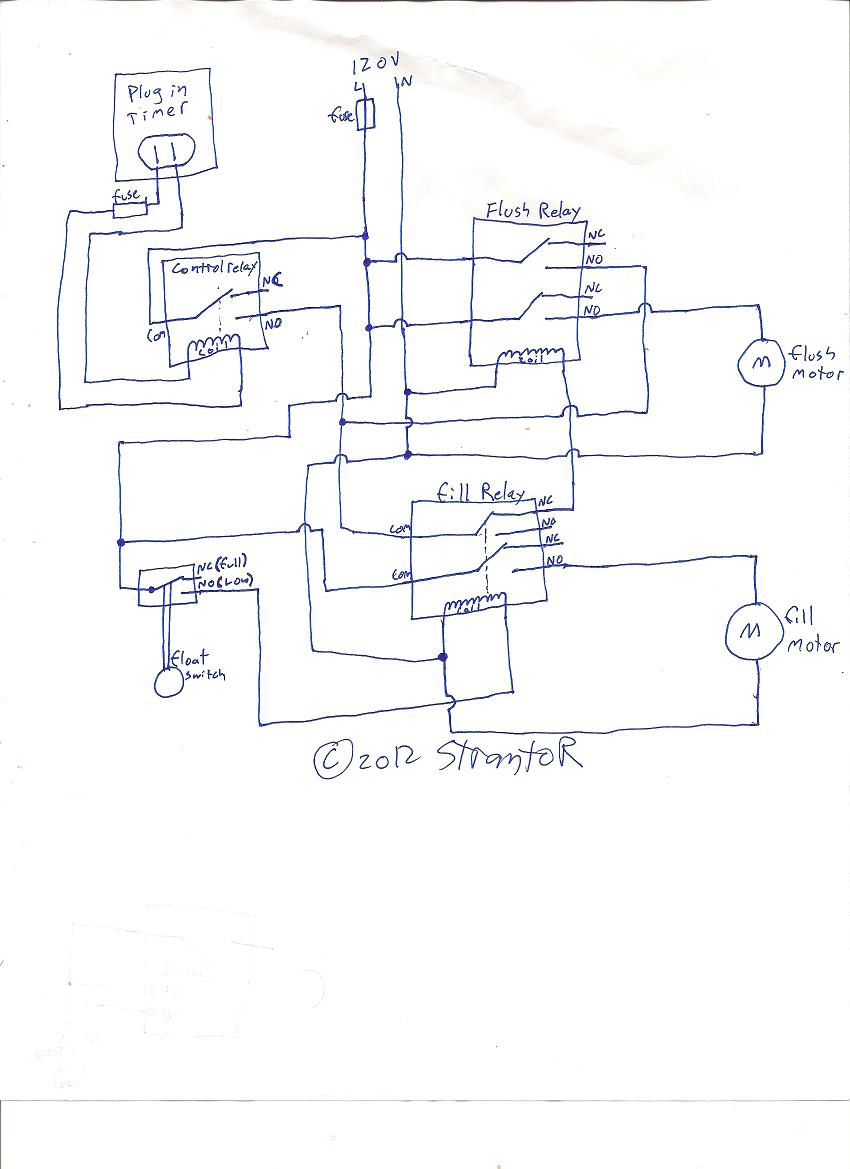 120V
L N
Plug in
Timer
fuse
fuse
Flush Relay
NC
NO
NC
NO
Coil
Control relay
NC
NO
Com
Coil
Flush
Motor
Fill Relay
Com
Com
NC
NO
NC
NO
Coil
NC(Full)
NO(Low)
Float
Switch
Fill
Motor
M
M
© 2012 StrantoR